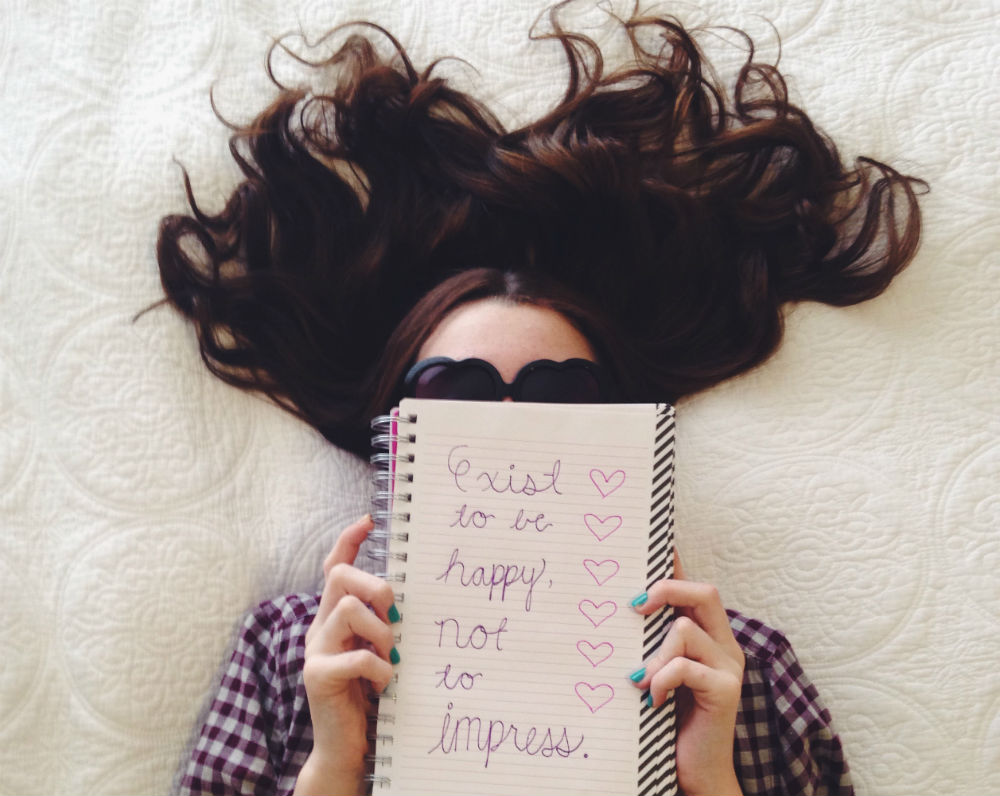 Exist
to be
happy,
not
to
impress.